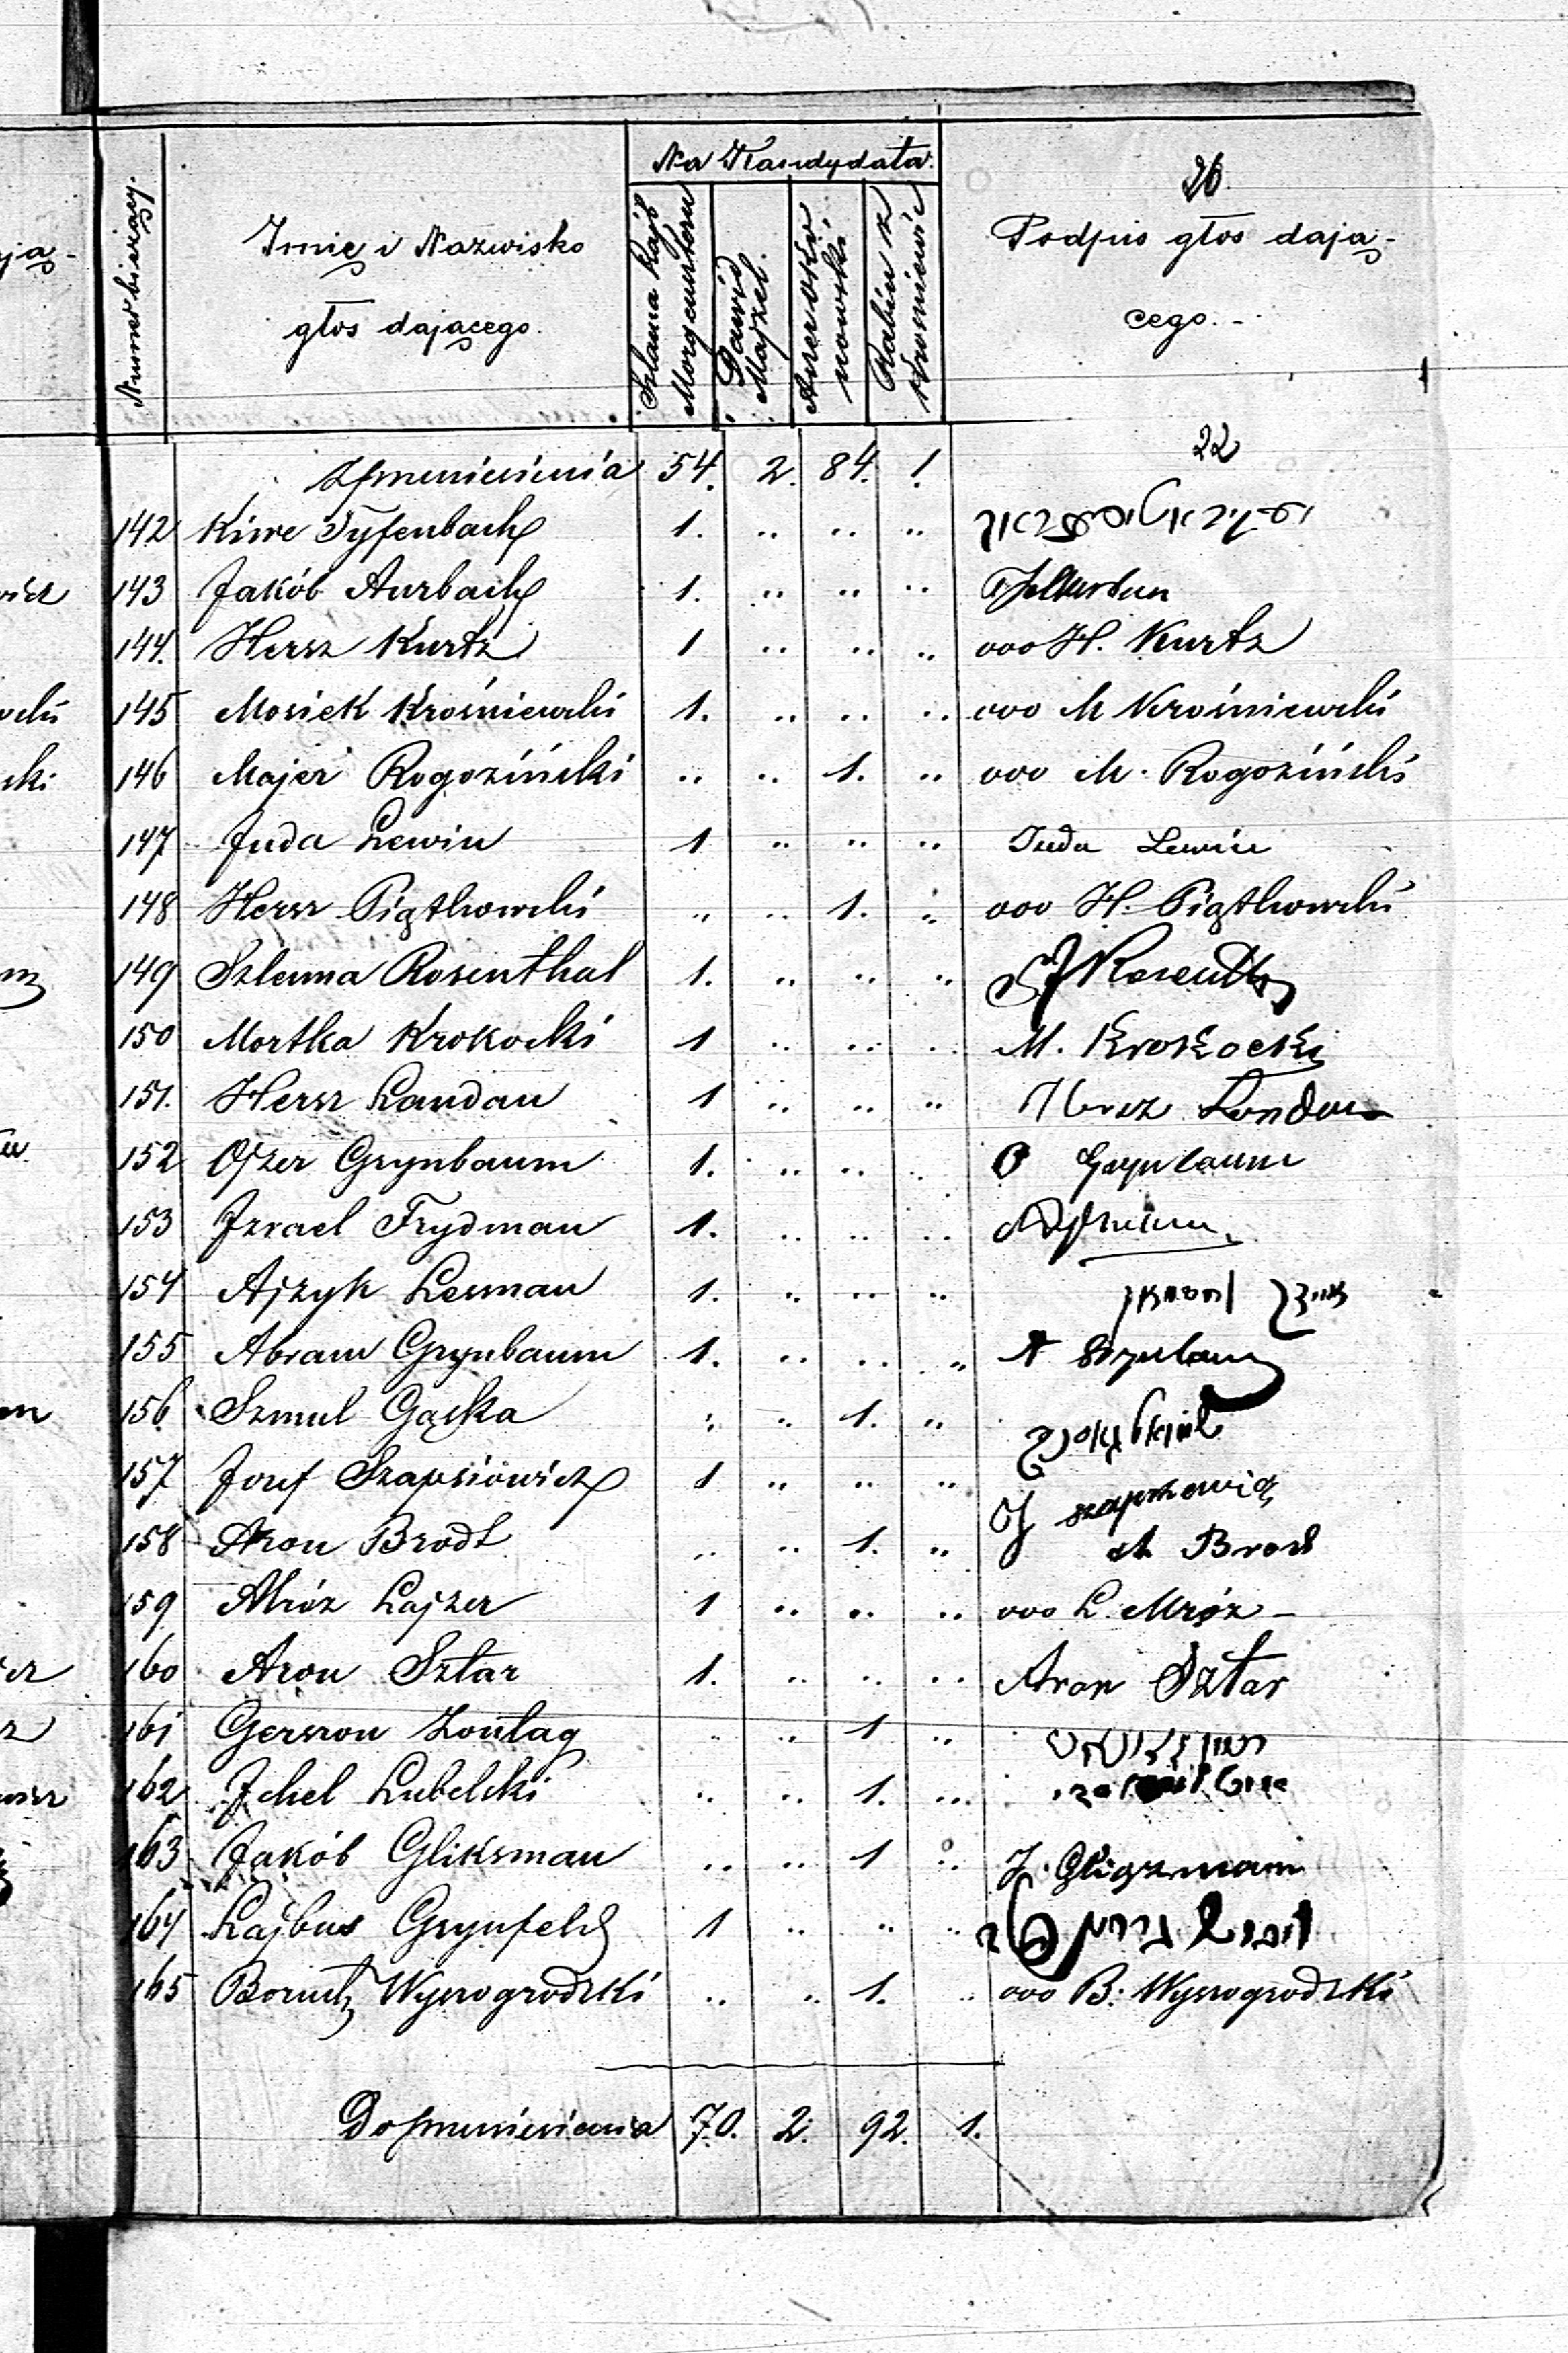 Na Kandydata.
26
Numer bieżący.
Imię i Nazwisko głos dającego.
Szlama Lajb Morgensztern
Dawid Majzel.
Rabin z
Podpis głos dają-
cego.-
22
Z przeniesienia 54. 2. 84. 1.
142 Kiwe Tyfenbach 1. .. .. ..
143 Jakób Aurbach 1. .. .. ..
144. Hersz Kurtz 1 .. .. .. ooo H. Kurtz
145 Mosiek Krośniewski 1. .. .. .. ooo M Krośniewski
146 Majer Rogoziński .. .. 1. .. ooo M. Rogoziński
147 Juda Lewin 1 .. .. .. Juda Lewin
148 Hersz Piątkowski .. .. 1. .. ooo H. Piątkowski
149 Szlema Rosenthal 1. .. .. .. Rosenth
150 Mortka Krokocki 1 .. .. .. M. Krokocki
151. Hersz Landau 1 .. .. .. Hersz Landau
152 Ojzer Grynbaum 1. .. .. .. O Grynbaum
153 Izrael Frydman 1. .. .. ..
154 Ajzyk Lesman 1. .. .. .. אייזיק לעסמאן
155 Abram Grynbaum 1. .. .. .. A Grynbaum
156. Szmul Gąska .. .. 1. ..
157 Josef Szapsiowicz 1 .. .. .. J szapsiowicz
158 Aron Brodt .. .. 1. .. A Brodt
159 Mróz Lajzer 1 .. .. .. ooo L. Mróz -
160 Aron Sztar 1. .. .. .. Aron Sztar
161 Gerszon Zontag .. .. 1 ..
162 Ichel Lubelski .. .. 1. ..
163 Jakób Gliksman .. .. 1 .. J. Gligzman
164 Lajbus Grynfeld 1 .. .. ..
165 Boruch Wyszogrodzki .. .. 1. .. ooo B. Wyszogrodzki
Do przeniesienia 70. 2. 92. 1.